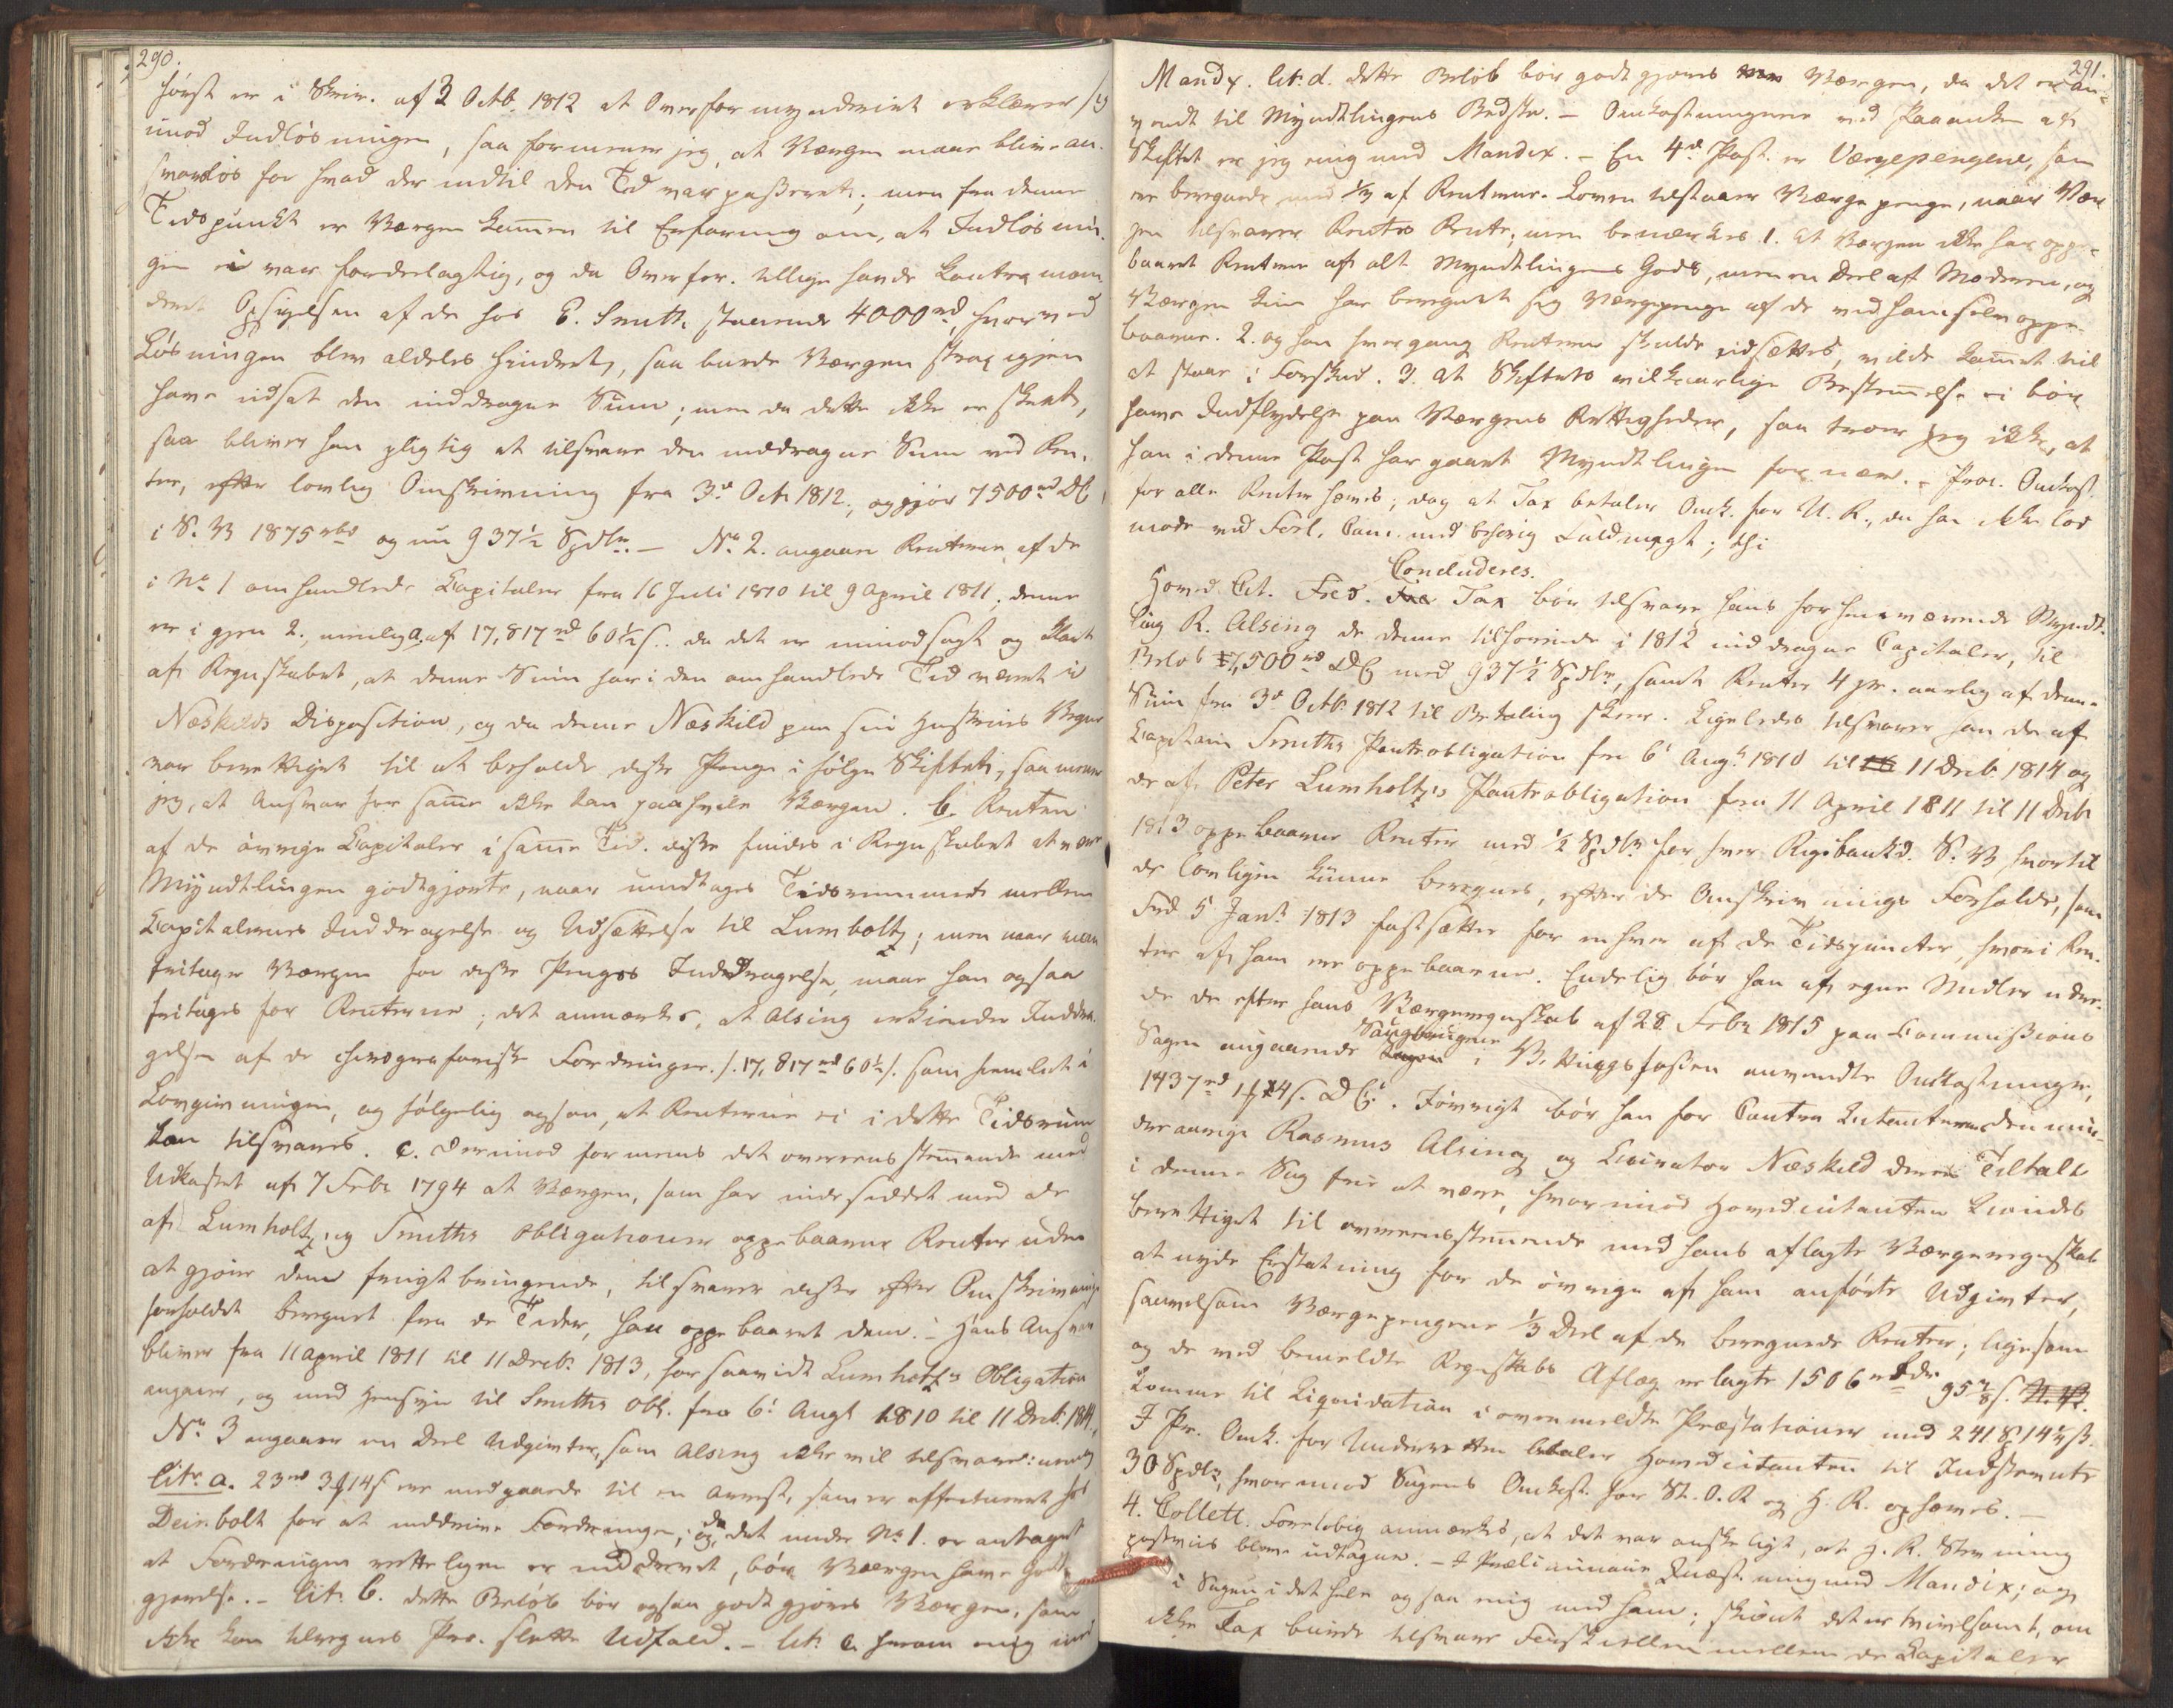 290.
først er i Skriv. af 3 Octb. 1812 at Overformynderiet erklærer sig
imod Indløsningen, saa formener jeg, at Værgen maae blive an-
svarløs for hvad der indtil den Tid var passeret; men fra denne
Tidspunkt er Værgen kommen til Erfaring om, at Indløsnin-
gen ei var fordeelagtig, og da Overfor. tillige havde Contraman-
deret Opsigelsen af de hos E. Smith staaende 4000 rd, hvorved
Løsningen blev aldeles hindret, saa burde Værgen strax igjen
have udsat den inddragne Sum; men da dette ikke er skeet,
saa bliver han pligtig at tilsvare den inddragne Sum med Ren-
ter, efter lovlig Omskrivning fra 3d Oct. 1812, og gjør 7500 rd DC,
i S. V. 1875 rbd og nu 937½ Spdlr. – No 2. angaaer Renterne af de
i No 1 omhandlede Capitaler fra 16 Juli 1810 til 9 April 1811, denne
er igjen 2., nemlig a. af 17,817 rd 60½ s. da det er uimodsagt og klart
af Regnskabet, at denne Sum har i den omhandlede Tid været i
Næskilds Disposition, og da denne Næskild paa sin Hustrues Vegne
var berettiget til at beholde disse Penge i følge Skiftet, saa mener
jeg, at Ansvar for samme ikke kan paahvile Værgen. b. Renten
af de øvrige Capitaler i samme Tid. disse findes i Regnskabet at være
Myndtlingen godtgjorte, naar undtages Tidsrummet mellem
Capitalernes Inddragelse og Udsættelse til Lumholtz; men naar man
fritager Værgen for disse Penges Inddragelse, maae han ogsaa
fritages for Renterne; det anmærkes, at Alsing erkiender Inddra-
gelsen af de chirografariske Fordringer /: 17,817 rd 60½ :/ som hiemlet i
Lovgivningen, og følgelig ogsaa, at Renterne ei i dette Tidsrum
kan tilsvares. c. Derimod formenes det overeensstemmende med
Udkastet af 7 Febr 1794 at Værgen, som har inde siddet med de
af Lumholtz og Smiths Obligationer oppebaarne Renter uden
at gjøre dem frugtbringende, tilsvarer disse efter Omskrivnings
forholdet beregnet fra de Tider, han oppebaaret dem. – Hans Ansvar
bliver fra 11 April 1811 til 11 Decb. 1813, for saavidt Lumholtz's Obligation
angaaer, og med Hensyn til Smiths Obl. fra 6' Augt 1810 til 11 Decb. 1814,
No 3 angaaer en Deel Udgivter, som Alsing ikke vil tilsvare: nemlig
litr. a. 23 rd 3 ƒ 14 s ere medgaaede til en Arrest, som er effectueret hos
Deinbolt for at inddrive Fordringen; og da det under No 1. er antaget
at Fordringen rettelig er inddrevet, bør Værgen have Godt-
gjørelse. – litr. b. dette Beløb bør ogsaa godtgjøres Værgen, som
ikke kan tilregnes Pro. slette Udfald. – litr. c. herom enig med
291.
Mandix. litr. d. dette Beløb bør godtgjøres Værgen, da det er an-
vendt til Myndtlingens Bedste. – Omkostningerne ved Paaanke af
Skiftet er jeg enig med Mandix. – En 4de Post. er Værgepengene, som
er beregnede med ⅓ af Renterne. Loven tilstaaer Værge penge, naar Vær-
gen tilsvarer Rentes Rente; men bemærkes 1. at Værgen ikke har oppe-
baaret Renterne af alt Myndtlingens Gods, men en Deel af Moderen, og
Værgen kun har beregnet sig Værgepenge af de ved ham selv oppe-
baarne. 2. og han hvergang Renterne skulde udsættes, vilde kommet til
at staae i Forskud. 3. at Skiftets vilkaarlige Bestemmelse ei bør
have Indflydelse paa Værgens Rettigheder, saa troer jeg ikke, at
han i denne Post har gaaet Myndtlingen for nær. – Proc. Omkost.
for alle Retter hæves; dog at Tax betaler Omk. for U. R., da han ikke lod
møde ved Forl. Com. med behørig Fuldmagt; thi
Concluderes.
Hoved Cit. Fred. Tax bør tilsvare hans forhenværende Myndt-
ling R. Alsing de denne tilhørende i 1812 inddragne Capitaler, til
Beløb 7,500 rd DC med 937½ Spdlr, samt Renter 4 pr. aarlig af denne
Sum fra 3d Octb. 1812 til Betaling skeer. Ligeledes tilsvarer han de af
Capitain Smiths Panteobligation fra 6' Augt 1810 til 11 Decb. 1814 og
de af Peter Lumholtz's Panteobligation fra 11 April 1811 til 11 Decb.
1813 oppebaarne Renter med ½ Spdlr for hver Rigsbankd. S. V., hvortil
de lovligen kunne beregnes, efter de Omskrivnings Forholde, som
Frd. 5 Janr 1813 fastsætter for enhver af de Tidspuncter, hvori Ren-
ter af ham ere oppebaarne. Endelig bør han af egne Midler udre-
de de efter hans Værgeregnskab af 28. Febr 1815 paa Commissions
Sagen angaaende Saugbrugene i Vittingsfossen anvendte Omkostninger,
1437 rd 1 ƒ 14 s. DC. Iøvrigt bør han for Contra Citantens den min-
dreaarige Rasmus Alsing og Curator Næskild deres Tiltale
i denne Sag frie at være, hvorimod Hovedcitanten kiendes
berettiget til overeensstemmende med hans aflagte Værgeregnskab
at nyde Erstatning for de øvrige af ham anførte Udgivter,
saavelsom Værgepengene ⅓ Deel af de beregnede Renter; ligesom
og de ved bemeldte Regnskabs Aflæg erlagte 1506 95⅞ s.
komme til Liquidation i ovenmeldte Præstationer med 241 Sp 14½ ß.
I Pr. Omk. for Underretten betaler Hovedcitanten til Indstevnte
30 Spdlr, hvorimod Sagens Omkost. for St. O. R. og H. R. ophæves. –
4. Collett. Foreløbig anmærkes, at det var ønskeligt, at H. R. Stevning
postviis bleve udtagne. – I Præliminaire Quæst. enig med Mandix; og
i Sagen i det hele ogsaa enig med ham; skiønt det er tvivlsomt, om
ikke Tax burde tilsvare Forskiellen mellem de Capitaler